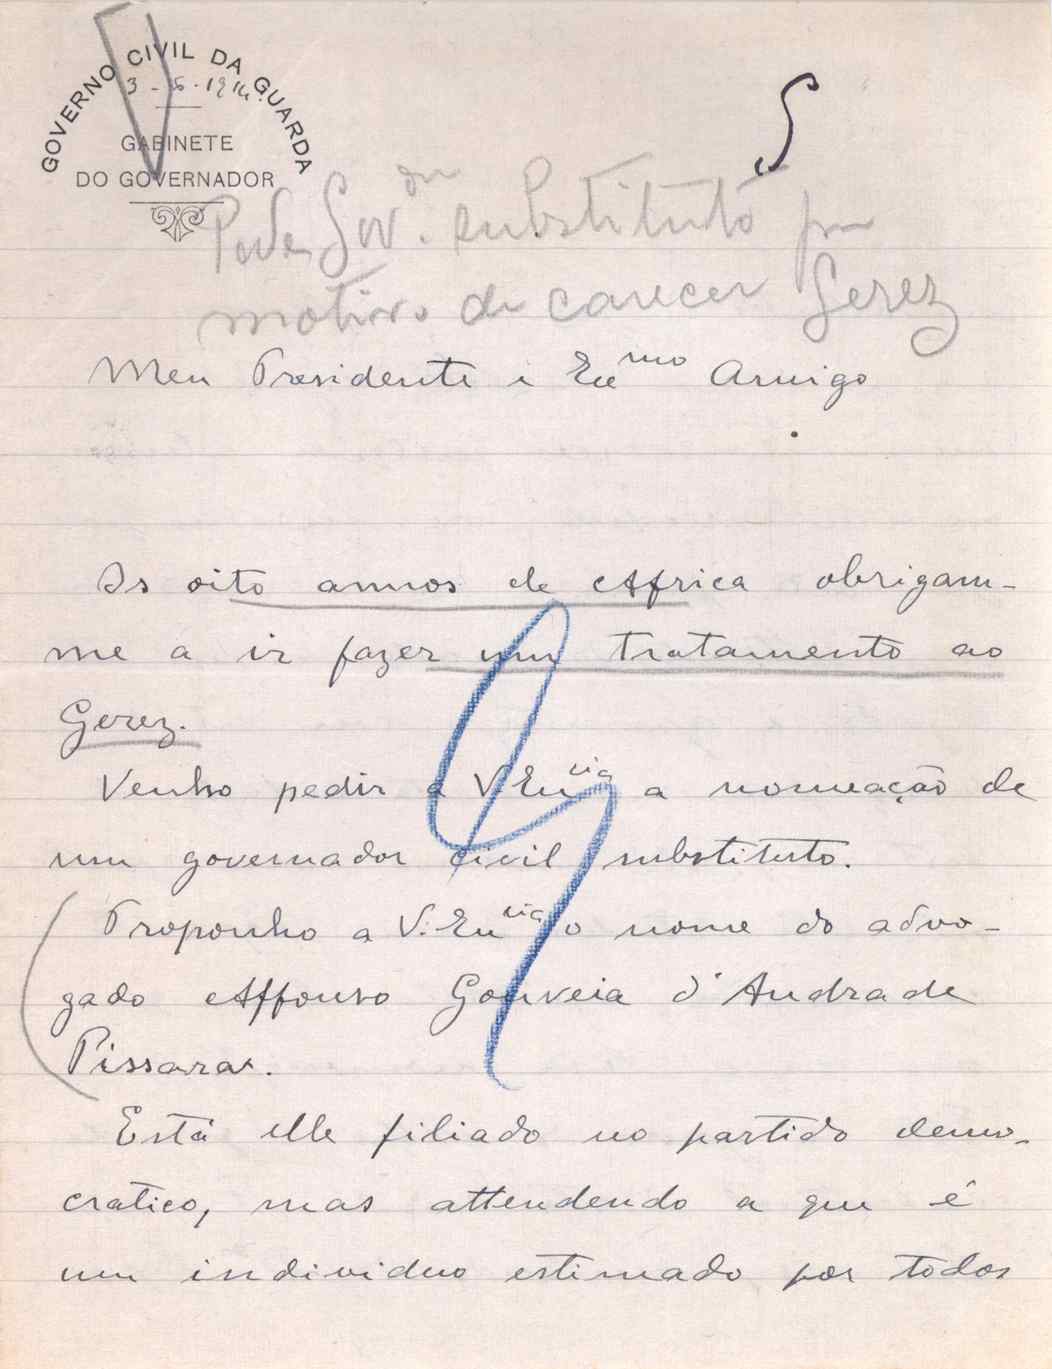 GOVERNO CIVIL DA GUARDA
3-6-1914.
GABINETE
DO GOVERNADOR
Pede Gov.or substituto por
motivo de carecer Gerez
Meu Presidente e Exmo Amigo
Os oito annos de Africa obrigam-
me a ir fazer um tratamento ao
Gerez.
Venho pedir a V. Excia a nomeação de
um governador civil substituto.
Proponho a V. Excia o nome do advo-
gado Affonso Gouveia d'Andrade
Pissarra.
Está elle filiado no partido demo-
cratico, mas attendendo a que é
um individuo estimado por todos